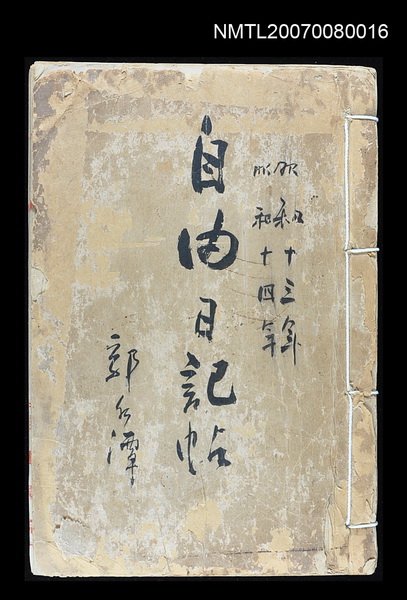 NMTL20070080016
昭和十三年
昭和十四年
自由日記帖
郭水潭